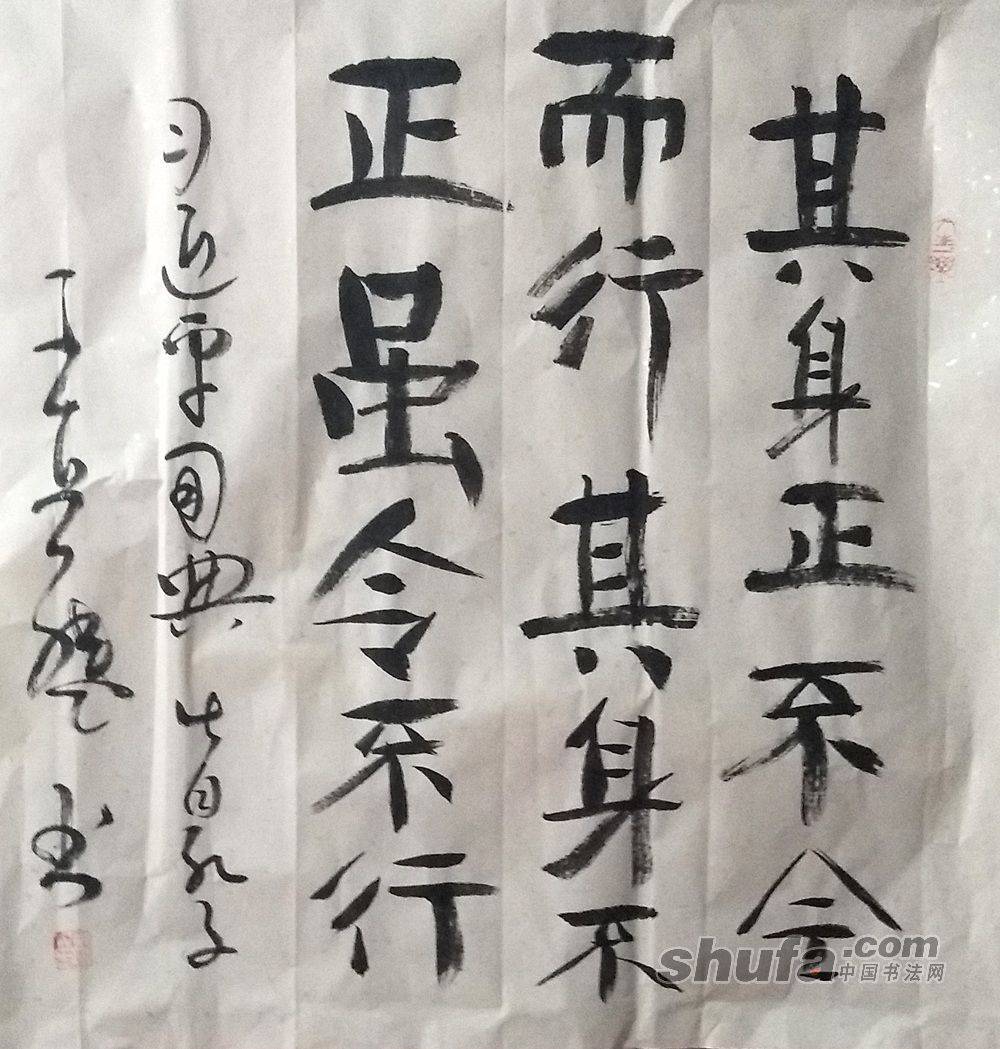 其身正不令
而行其身不
正虽令不行
习近平用典 出自孔子
王 书
shufa.com
中国书法网